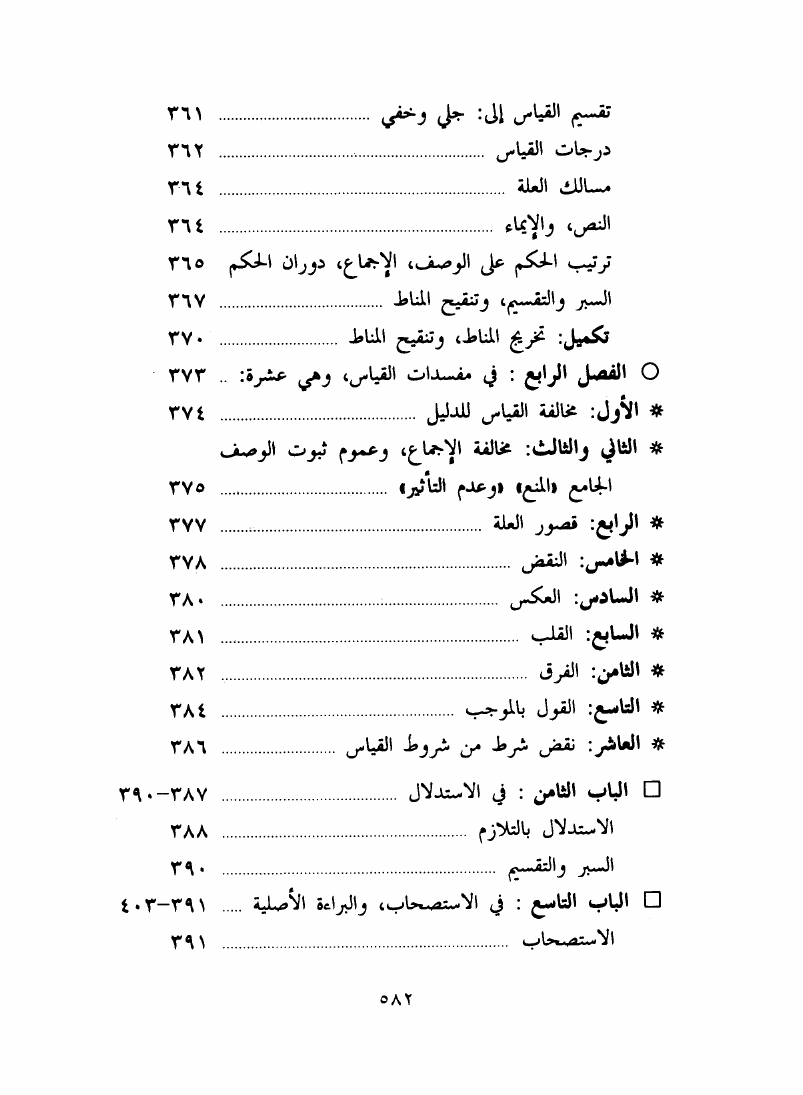 تقسيم القياس إلى: جلي وخفي ........ ٣٦١
درجات القياس ........ ٣٦٢
مسالك العلة ........ ٣٦٤
النص، والإيماء ........ ٣٦٤
ترتيب الحكم على الوصف، الإجماع، دوران الحكم ٣٦٥
السبر والتقسيم، وتنقيح المناط ........ ٣٦٧
تكميل: تخريج المناط، وتنقيح المناط ........ ٣٧٠
○ الفصل الرابع : في مفسدات القياس، وهي عشرة: .. ٣٧٣
* الأول: مخالفة القياس للدليل ........ ٣٧٤
* الثاني والثالث: مخالفة الإجماع، وعموم ثبوت الوصف
الجامع «المنع» «وعدم التأثير» ........ ٣٧٥
* الرابع: قصور العلة ........ ٣٧٧
* الخامس: النقض ........ ٣٧٨
* السادس: العكس ........ ٣٨٠
* السابع: القلب ........ ٣٨١
* الثامن: الفرق ........ ٣٨٢
* التاسع: القول بالموجب ........ ٣٨٤
* العاشر: نقض شرط من شروط القياس ........ ٣٨٦
□ الباب الثامن : في الاستدلال ........ ٣٨٧-٣٩٠
الاستدلال بالتلازم ........ ٣٨٨
السبر والتقسيم ........ ٣٩٠
□ الباب التاسع : في الاستصحاب، والبراءة الأصلية ..... ٣٩١-٤٠٣
الاستصحاب ........ ٣٩١
٥٨٢